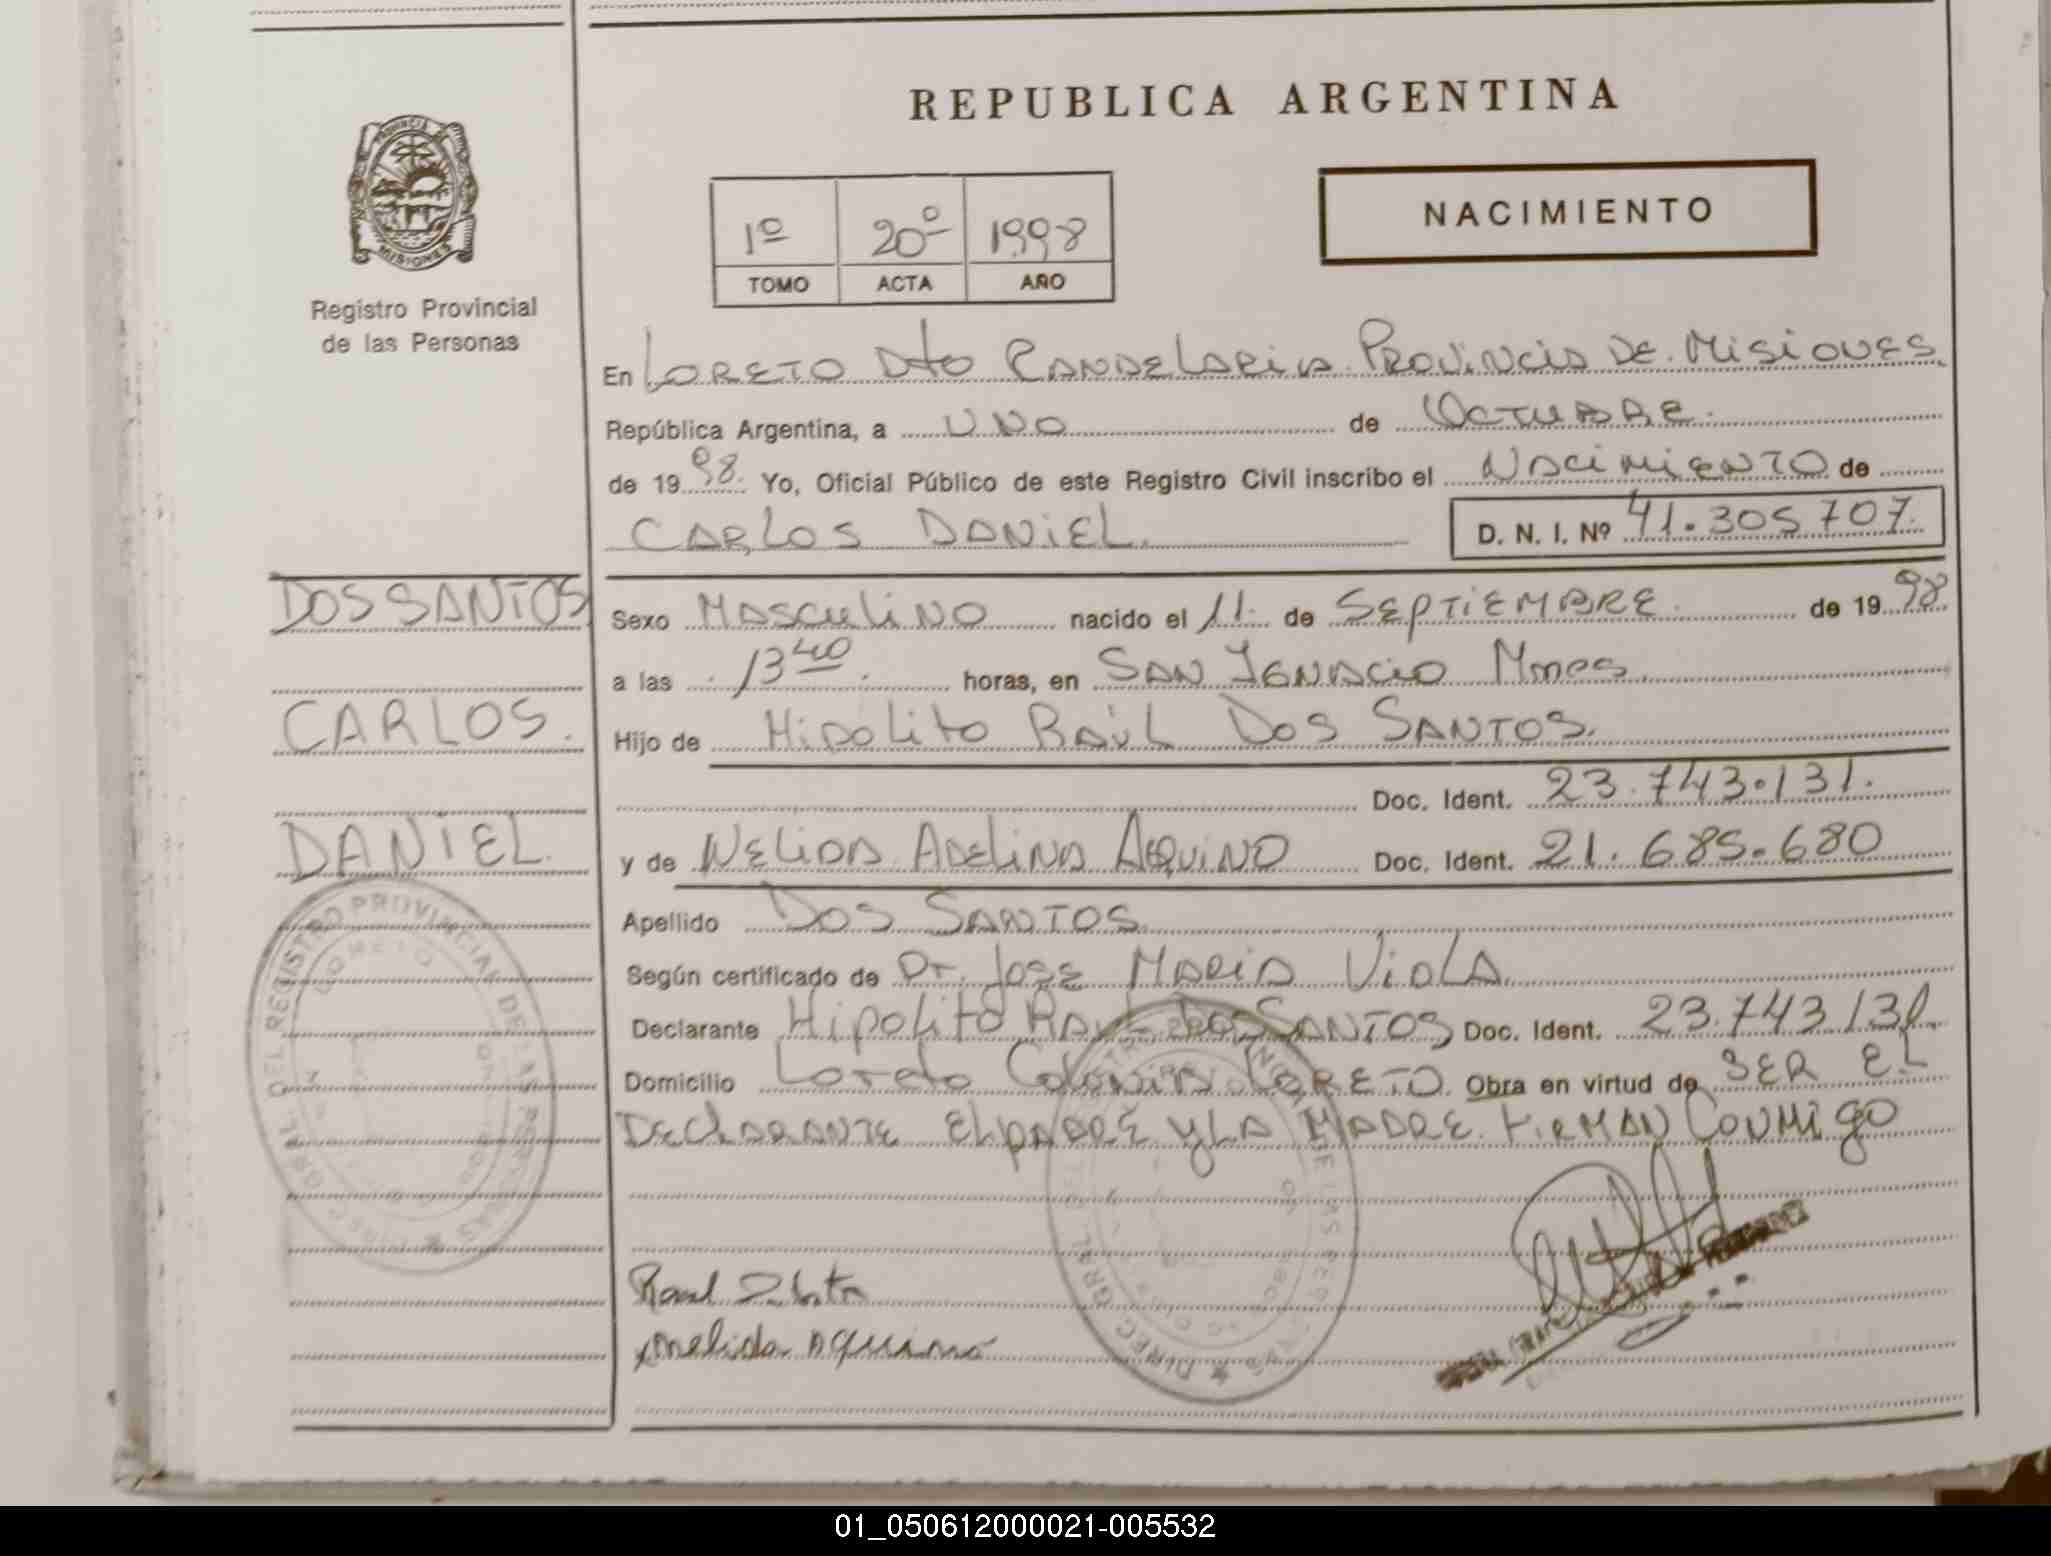 REPUBLICA ARGENTINA
PROVINCIA DE
MISIONES
Registro Provincial
de las Personas
1º 20º 1998
TOMO ACTA AÑO
NACIMIENTO
En LORETO Dto CANDELARIA PROVINCIA DE MISIONES.
República Argentina, a UNO de OCTUBRE.
de 1998. Yo, Oficial Público de este Registro Civil inscribo el NACIMIENTO de
CARLOS DANIEL. D. N. I. Nº 41.305.707.
DOS SANTOS
CARLOS.
DANIEL.
Sexo MASCULINO nacido el 11. de SEPTIEMBRE. de 1998.
a las 13 40. horas, en SAN IGNACIO Mnes.
Hijo de HIPOLITO RAÚL DOS SANTOS.
Doc. Ident. 23.743.131.
y de NELIDA ADELINA AQUINO Doc. Ident. 21.685.680
Apellido DOS SANTOS.
Según certificado de Dr. JOSE MARIA VIOLA.
Declarante HIPOLITO RAUL DOS SANTOS Doc. Ident. 23.743 131.
Domicilio Loreto Colonia LORETO. Obra en virtud de SER EL
DECLARANTE EL PADRE Y LA MADRE. FIRMAN CONMIGO
DIREC. GRAL. DEL REGISTRO PROVINCIAL DE LAS PERSONAS
LORETO
Raul
Nelida Aquino
01_050612000021-005532